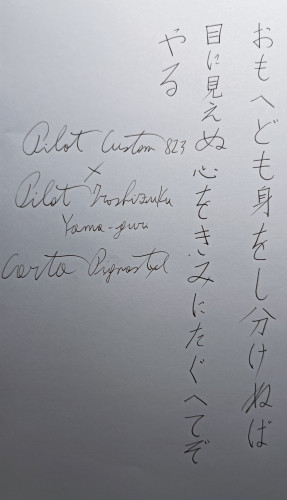 おもへども身をし分けねば
目に見えぬ心をきみにたぐへてぞ
やる
Pilot Custom 823
×
Pilot Iroshizuku
Yama-guri
Carta Pignastyl